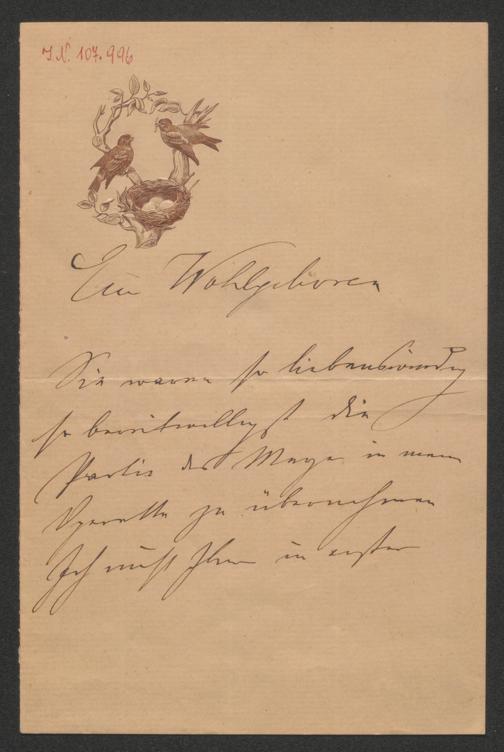 J.N. 107.996
Euer Wohlgeboren
Sie waren so liebenswürdig
so bereitwilligst die
Partie des in meiner
Operette zu übernehmen
Ich muß Ihnen in erster